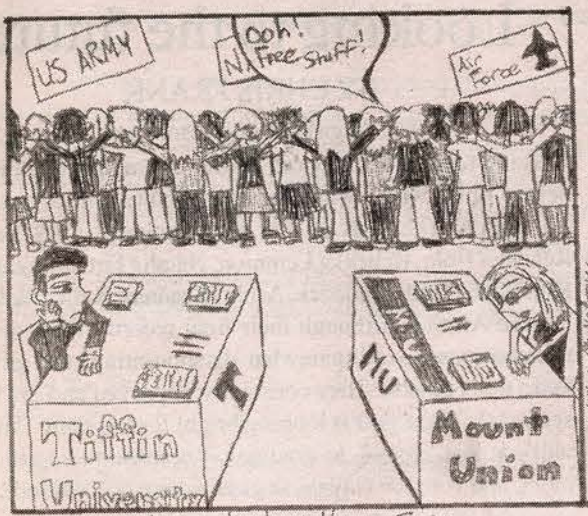 US ARMY
Ooh!
Free stuff!
Air
Force
T
MU
MU
Tiffin
University
Mount
Union